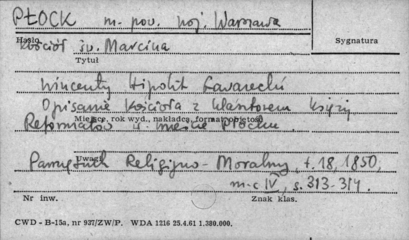 PŁOCK m. pow. woj. Warszawa
Hasło
Kościół św. Marcina
Sygnatura
Tytuł
Wincenty Hipolit Gawarecki
Opisanie kościoła z klasztorem księży
Miejsce, rok wyd., nakładca, format, objętość
Reformatów w mieście Płocku.
Uwagi
Pamiętnik Religijno-Moralny, t.18, 1850,
m-c IV, s. 313-314.
Nr inw.
Znak klas.
CWD - B-15a, nr 937/ZW/P. WDA 1216 25.4.61 1.380.000.